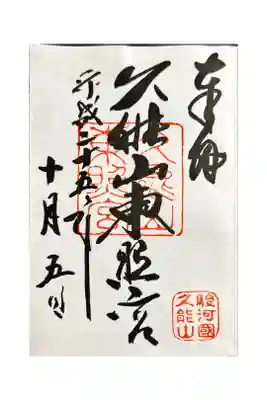 奉拝
久能山東照宮
平成二十五年
十月五日
東照宮
駿河國
久能山